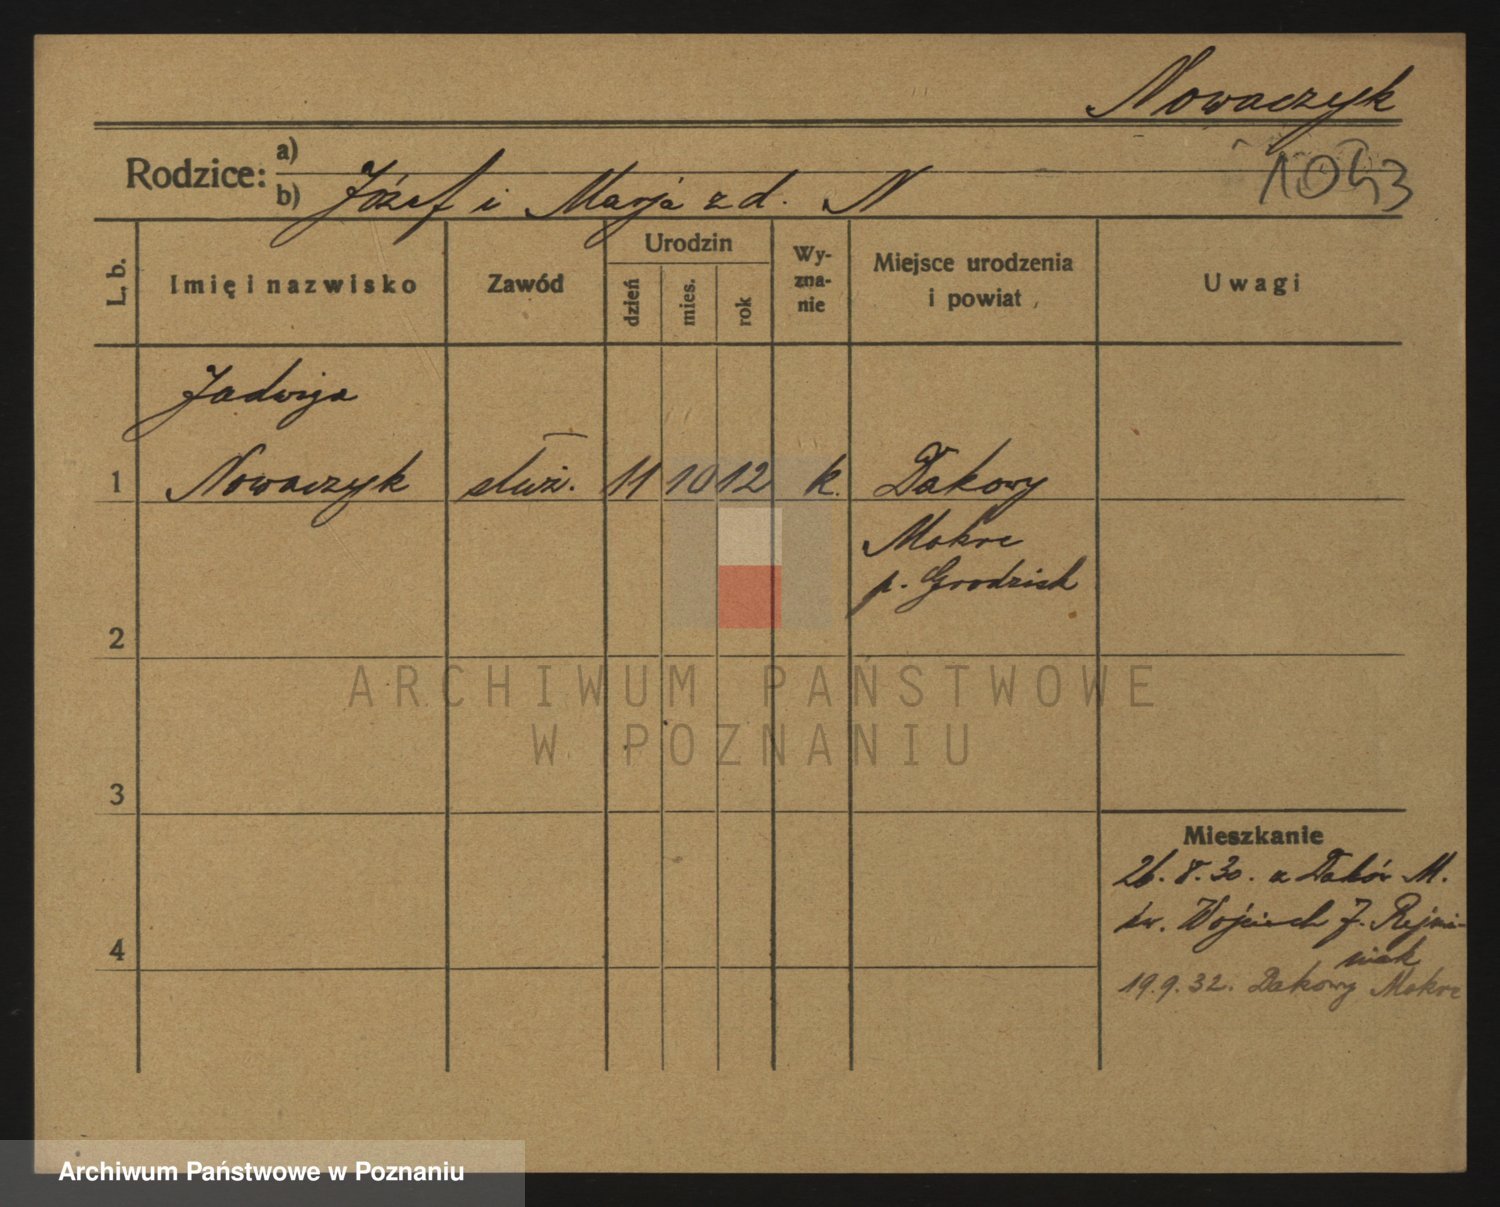 Nowaczyk
1043
Rodzice: a)
b) Józef i Marja z d. N
L. b.
Imię i nazwisko
Zawód
Urodzin
dzień
mies.
rok
Wy-
zna-
nie
Miejsce urodzenia
i powiat
Uwagi
Jadwiga
1 Nowaczyk służ. 11 10 12 k. Dakowy
Mokre
p. Grodzisk
2
ARCHIWUM PAŃSTWOWE
W POZNANIU
3
Mieszkanie
26. 8. 30. z Daków M.
św. Wojciech 7. Rejmi-
niak
4
19. 9. 32. Dakowy Mokre
Archiwum Państwowe w Poznaniu